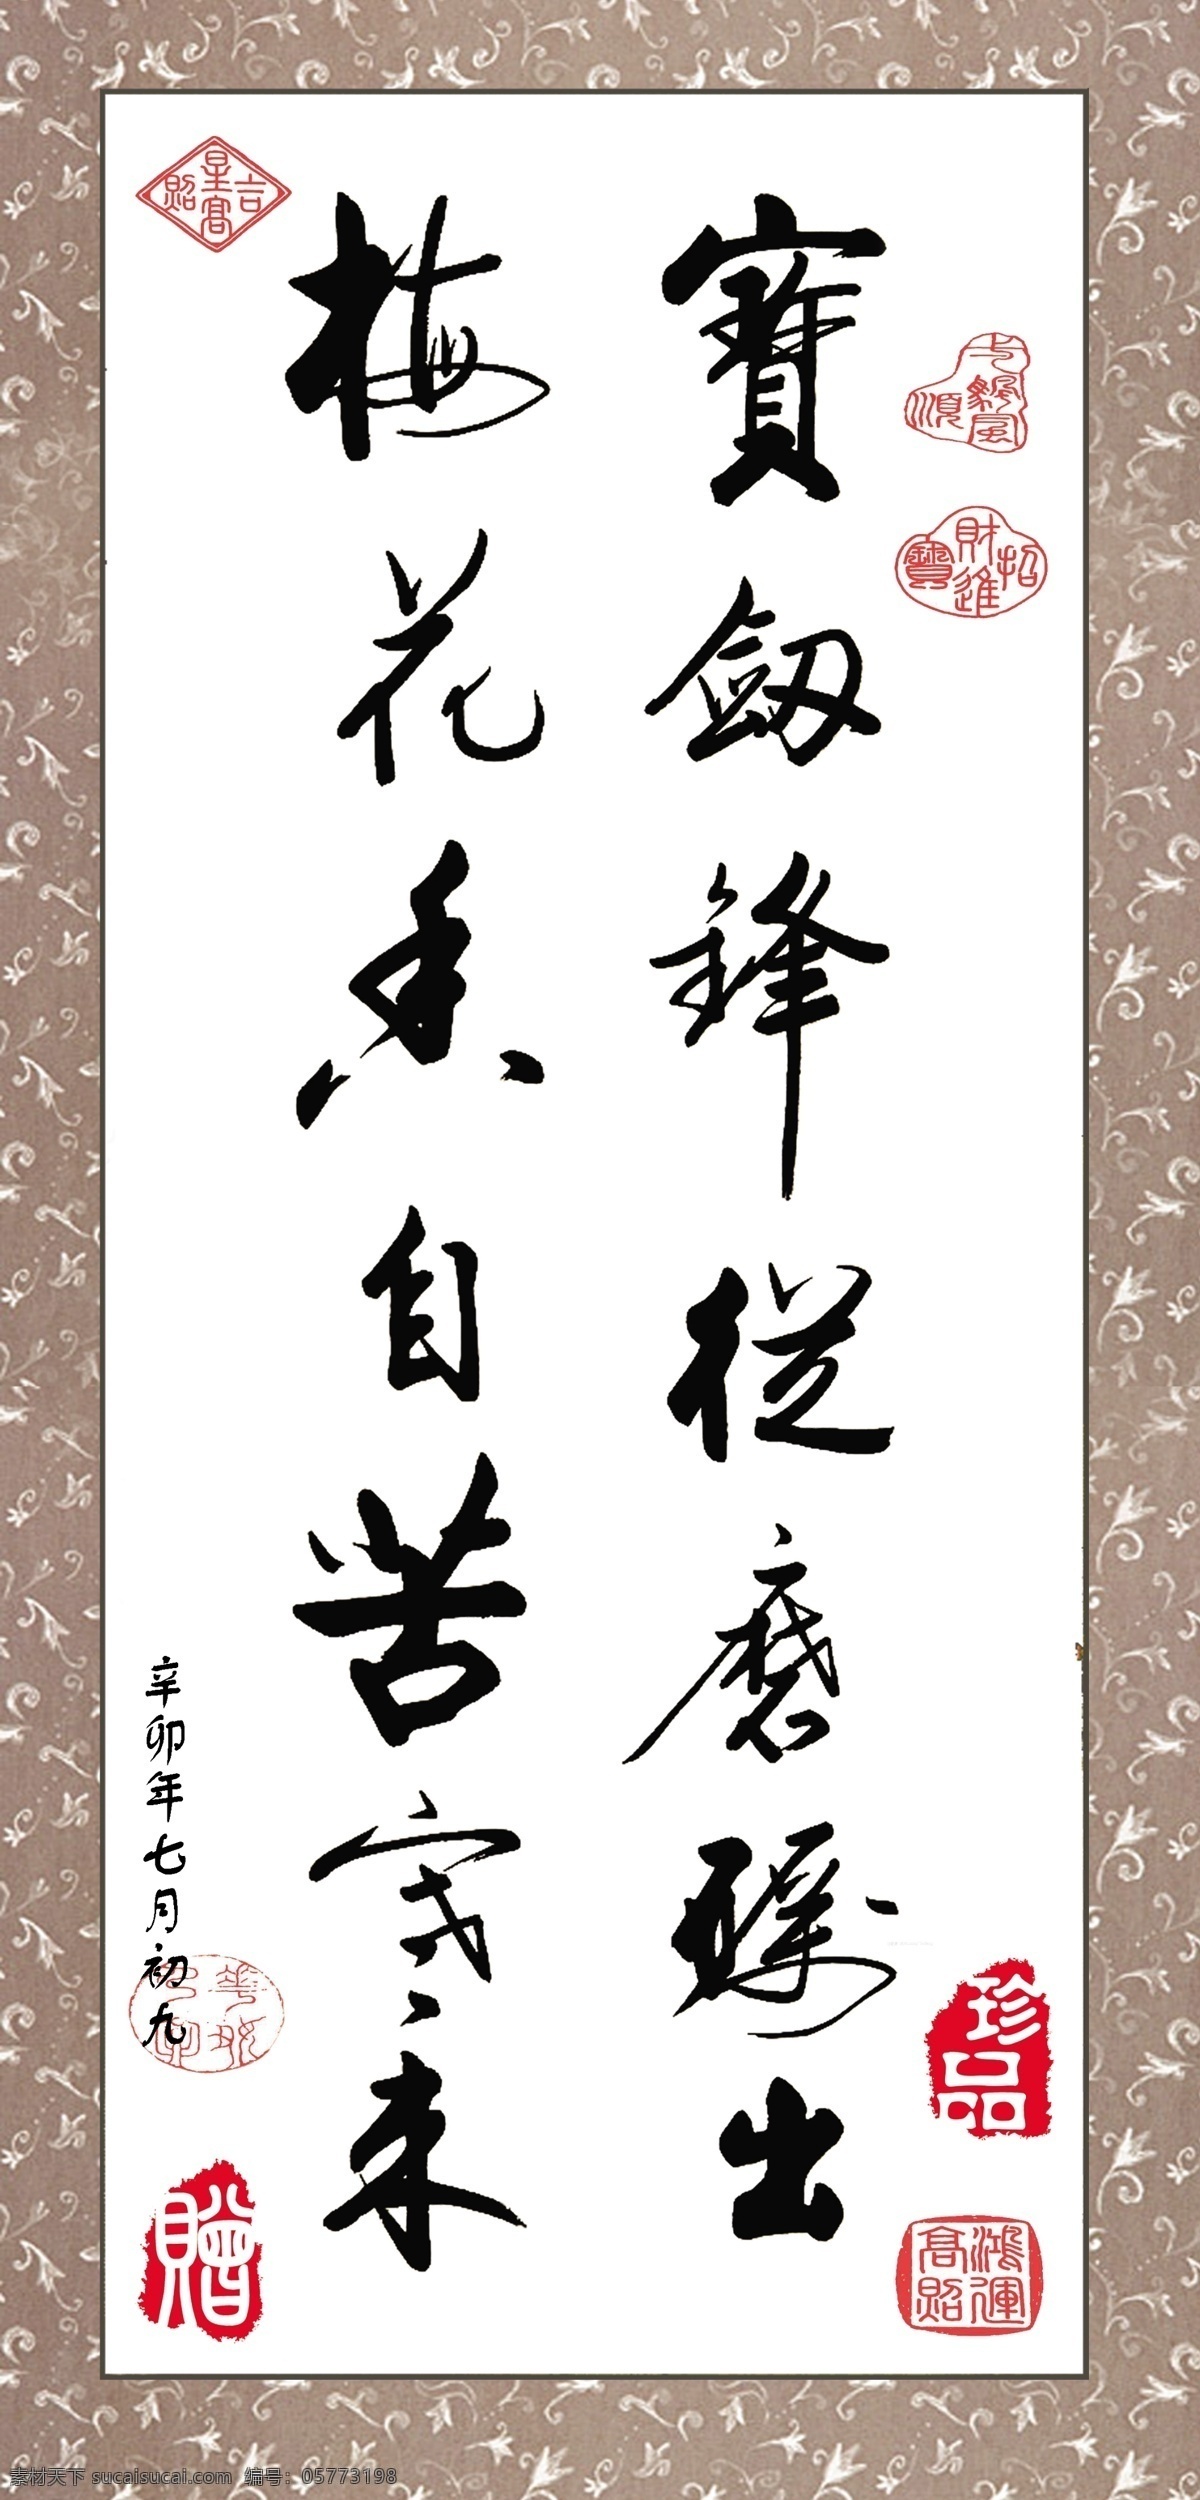 寶劔鋒從磨礪出
梅花香自苦寒來
辛卯年七月初九
吉星高照
招財進寶
珍品
鴻運高照
贈
素材天下 sucaisucai.com 编号：05773198